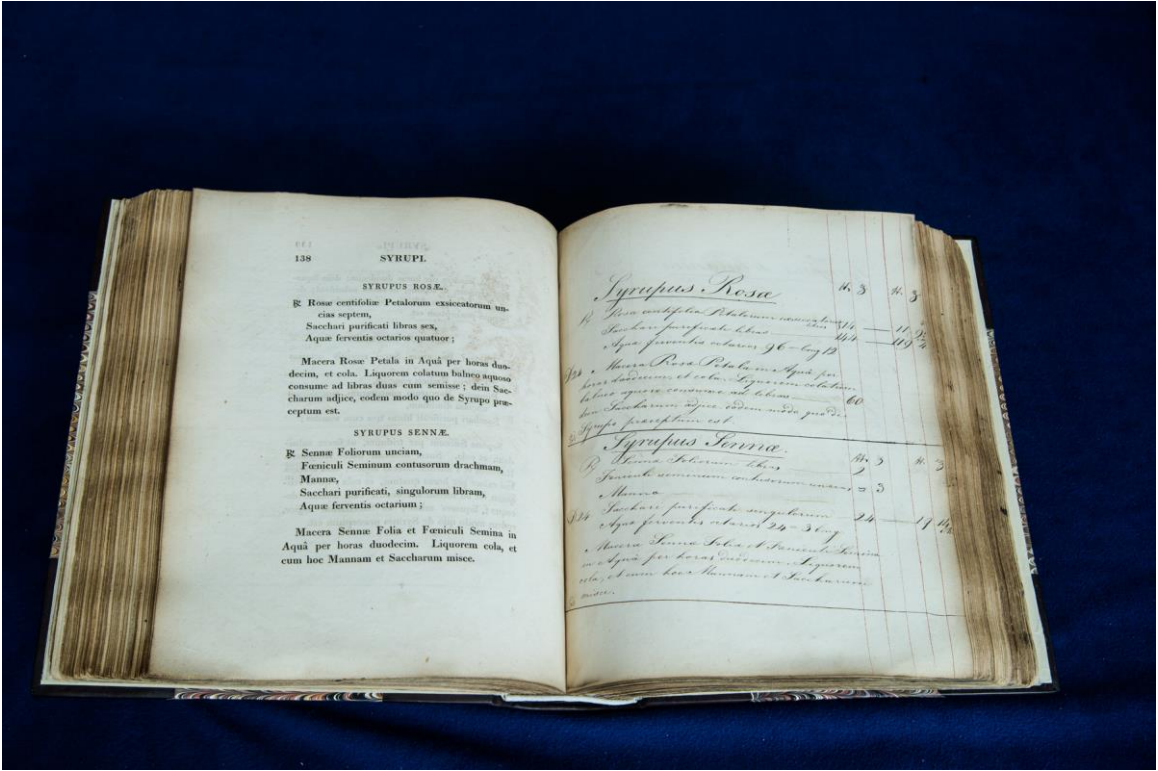 138 SYRUPI.
SYRUPUS ROSÆ.
℞ Rosæ centifoliæ Petalorum exsiccatorum un-
cias septem,
Sacchari purificati libras sex,
Aquæ ferventis octarios quatuor;
Macera Rosæ Petala in Aquâ per horas duo-
decim, et cola. Liquorem colatum balneo aquoso
consume ad libras duas cum semisse; dein Sac-
charum adjice, eodem modo quo de Syrupo præ-
ceptum est.
SYRUPUS SENNÆ.
℞ Sennæ Foliorum unciam,
Fœniculi Seminum contusorum drachmam,
Mannæ,
Sacchari purificati, singulorum libram,
Aquæ ferventis octarium;
Macera Sennæ Folia et Fœniculi Semina in
Aquâ per horas duodecim. Liquorem cola, et
cum hoc Mannam et Saccharum misce.
Syrupus Rosæ
Rosa centifolia Petalorum
Sacchari purificate libras 144 119
Aqua ferventis octarios 96
Macera Rosa Petala in Aquâ per
horas duodecim, et cola. Liquorem colatum
balneo aquoso consume ad libras 60
Saccharum adjice eodem modo quo de
Syrupo præceptum est
Syrupus Sennæ.
℞ Senna Foliorum libras 2
Fœniculi seminum contusorum 3
Manna
Sacchari purificate singulorum 24 19
Aqua ferventis octarios 24
Macera Senna Folia et Fœniculi Semina
in Aquâ per horas duodecim. Liquorem
cola, et cum hoc Mannam et Saccharum
misce.